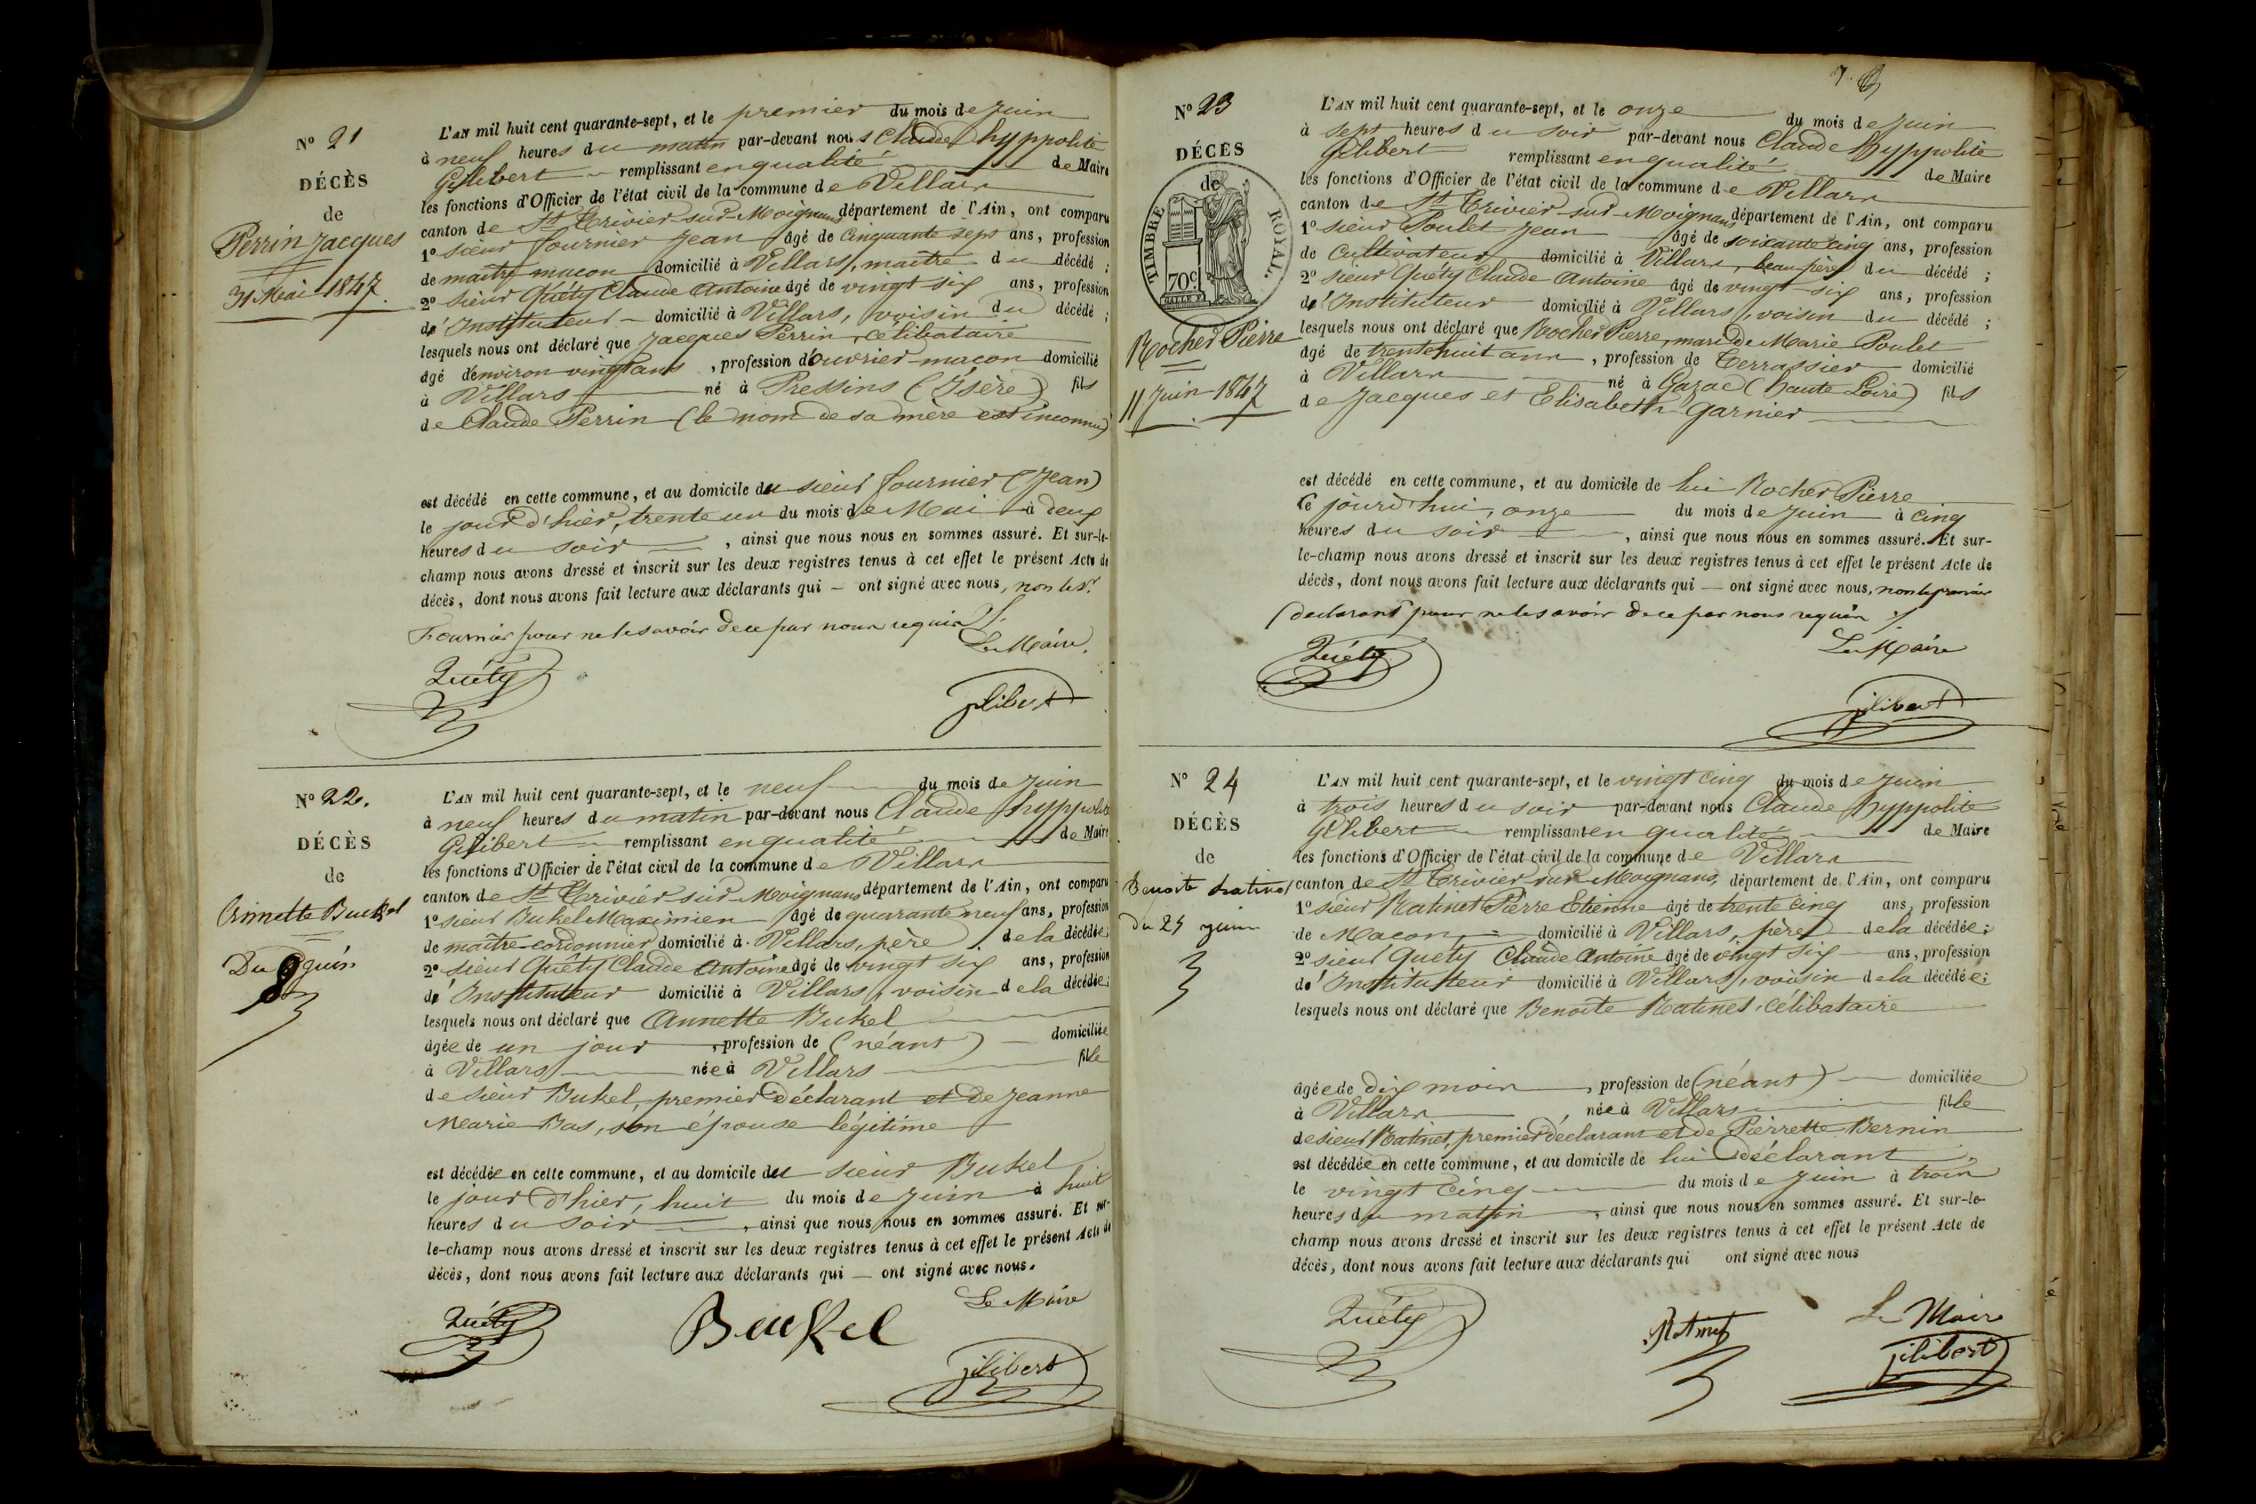 N° 21
DÉCÈS
de
Perrin Jacques
31 Mai 1847
L'AN mil huit cent quarante-sept, et le premier du mois de Juin
à neuf heures du matin par-devant nous Claude hyppolite
Gilibert remplissant en qualité de Maire
les fonctions d'Officier de l'état civil de la commune de Villars
canton de St Trivier sur Moignans département de l'Ain, ont comparu
1° sieur fournier Jean âgé de Cinquante sept ans, profession
de maître maçon domicilié à Villars, maître du décédé ;
2° sieur Quéty Claude Antoine âgé de vingt six ans, profession
d'Instituteur domicilié à Villars, voisin du décédé ;
lesquels nous ont déclaré que Jacques Perrin, célibataire
âgé d'environ vingt ans, profession d'ouvrier maçon domicilié
à Villars né à Pressins (Isère) fils
de Claude Perrin (le nom de sa mère est inconnu)
est décédé en cette commune, et au domicile du sieur fournier (Jean)
le jour d'hier, trente un du mois de Mai à deux
heures du soir, ainsi que nous nous en sommes assuré. Et sur-le-
champ nous avons dressé et inscrit sur les deux registres tenus à cet effet le présent Acte de
décès, dont nous avons fait lecture aux déclarants qui — ont signé avec nous, non le sr
Fournier pour ne le savoir de ce par nous requis
Le Maire.
Quéty
Gilibert
N° 22.
DÉCÈS
de
Annette Buckel
Du 8 juin
L'AN mil huit cent quarante-sept, et le neuf du mois de Juin
à neuf heures du matin par-devant nous Claude hyppolite
Gilibert remplissant en qualité de Maire
les fonctions d'Officier de l'état civil de la commune de Villars
canton de St Trivier sur Moignans département de l'Ain, ont comparu
1° sieur Bukel Maximien âgé de quarante neuf ans, profession
de maître cordonnier domicilié à Villars, père de la décédée ;
2° sieur Quéty Claude Antoine âgé de vingt six ans, profession
d'Instituteur domicilié à Villars, voisin de la décédée ;
lesquels nous ont déclaré que Annette Bukel
âgée de un jour, profession de (néant) domiciliée
à Villars née à Villars fille
de sieur Bukel, premier déclarant et de Jeanne
Marie Bas, son épouse légitime
est décédée en cette commune, et au domicile du sieur Bukel
le jour d'hier, huit du mois de Juin à huit
heures du soir, ainsi que nous nous en sommes assuré. Et sur-
le-champ nous avons dressé et inscrit sur les deux registres tenus à cet effet le présent Acte de
décès, dont nous avons fait lecture aux déclarants qui — ont signé avec nous.
Le Maire
Quéty
Buckel
Gilibert
7.
N° 23
DÉCÈS
de
TIMBRE ROYAL.
70c
Rocher Pierre
11 Juin 1847
L'AN mil huit cent quarante-sept, et le onze du mois de Juin
à sept heures du soir par-devant nous Claude hyppolite
Gilibert remplissant en qualité de Maire
les fonctions d'Officier de l'état civil de la commune de Villars
canton de St Trivier sur Moignans département de l'Ain, ont comparu
1° sieur Poulet Jean âgé de soixante cinq ans, profession
de Cultivateur domicilié à Villars, beau père du décédé ;
2° sieur Quéty Claude Antoine âgé de vingt six ans, profession
d'Instituteur domicilié à Villars, voisin du décédé ;
lesquels nous ont déclaré que Rocher Pierre, mari de Marie Poulet
âgé de trente huit ans, profession de Terrassier domicilié
à Villars né à Gazac (haute Loire) fils
de Jacques et Elisabeth Garnier
est décédé en cette commune, et au domicile de lui Rocher Pierre
le jourd'hui, onze du mois de Juin à cinq
heures du soir, ainsi que nous nous en sommes assuré. Et sur-
le-champ nous avons dressé et inscrit sur les deux registres tenus à cet effet le présent Acte de
décès, dont nous avons fait lecture aux déclarants qui — ont signé avec nous, non le premier
declarant pour ne le savoir de ce par nous requis
Le Maire
Quéty
Gilibert
N° 24
DÉCÈS
de
Benoite Ratinet
Du 25 juin
L'AN mil huit cent quarante-sept, et le vingt cinq du mois de Juin
à trois heures du soir par-devant nous Claude hyppolite
Gilibert remplissant en qualité de Maire
les fonctions d'Officier de l'état civil de la commune de Villars
canton de St Trivier sur Moignans, département de l'Ain, ont comparu
1° sieur Ratinet Pierre Etienne âgé de trente cinq ans, profession
de Maçon, domicilié à Villars, père de la décédée ;
2° sieur Quéty Claude Antoine âgé de vingt six ans, profession
d'Instituteur domicilié à Villars, voisin de la décédée ;
lesquels nous ont déclaré que Benoîte Ratinet, célibataire
âgée de dix mois, profession de (néant) domiciliée
à Villars née à Villars fille
de sieur Ratinet, premier déclarant et de Pierrette Bernin
est décédée en cette commune, et au domicile de lui déclarant
le vingt cinq du mois de Juin à trois
heures du matin, ainsi que nous nous en sommes assuré. Et sur-le-
champ nous avons dressé et inscrit sur les deux registres tenus à cet effet le présent Acte de
décès, dont nous avons fait lecture aux déclarants qui ont signé avec nous
Le Maire
Quéty
Ratinet
Gilibert